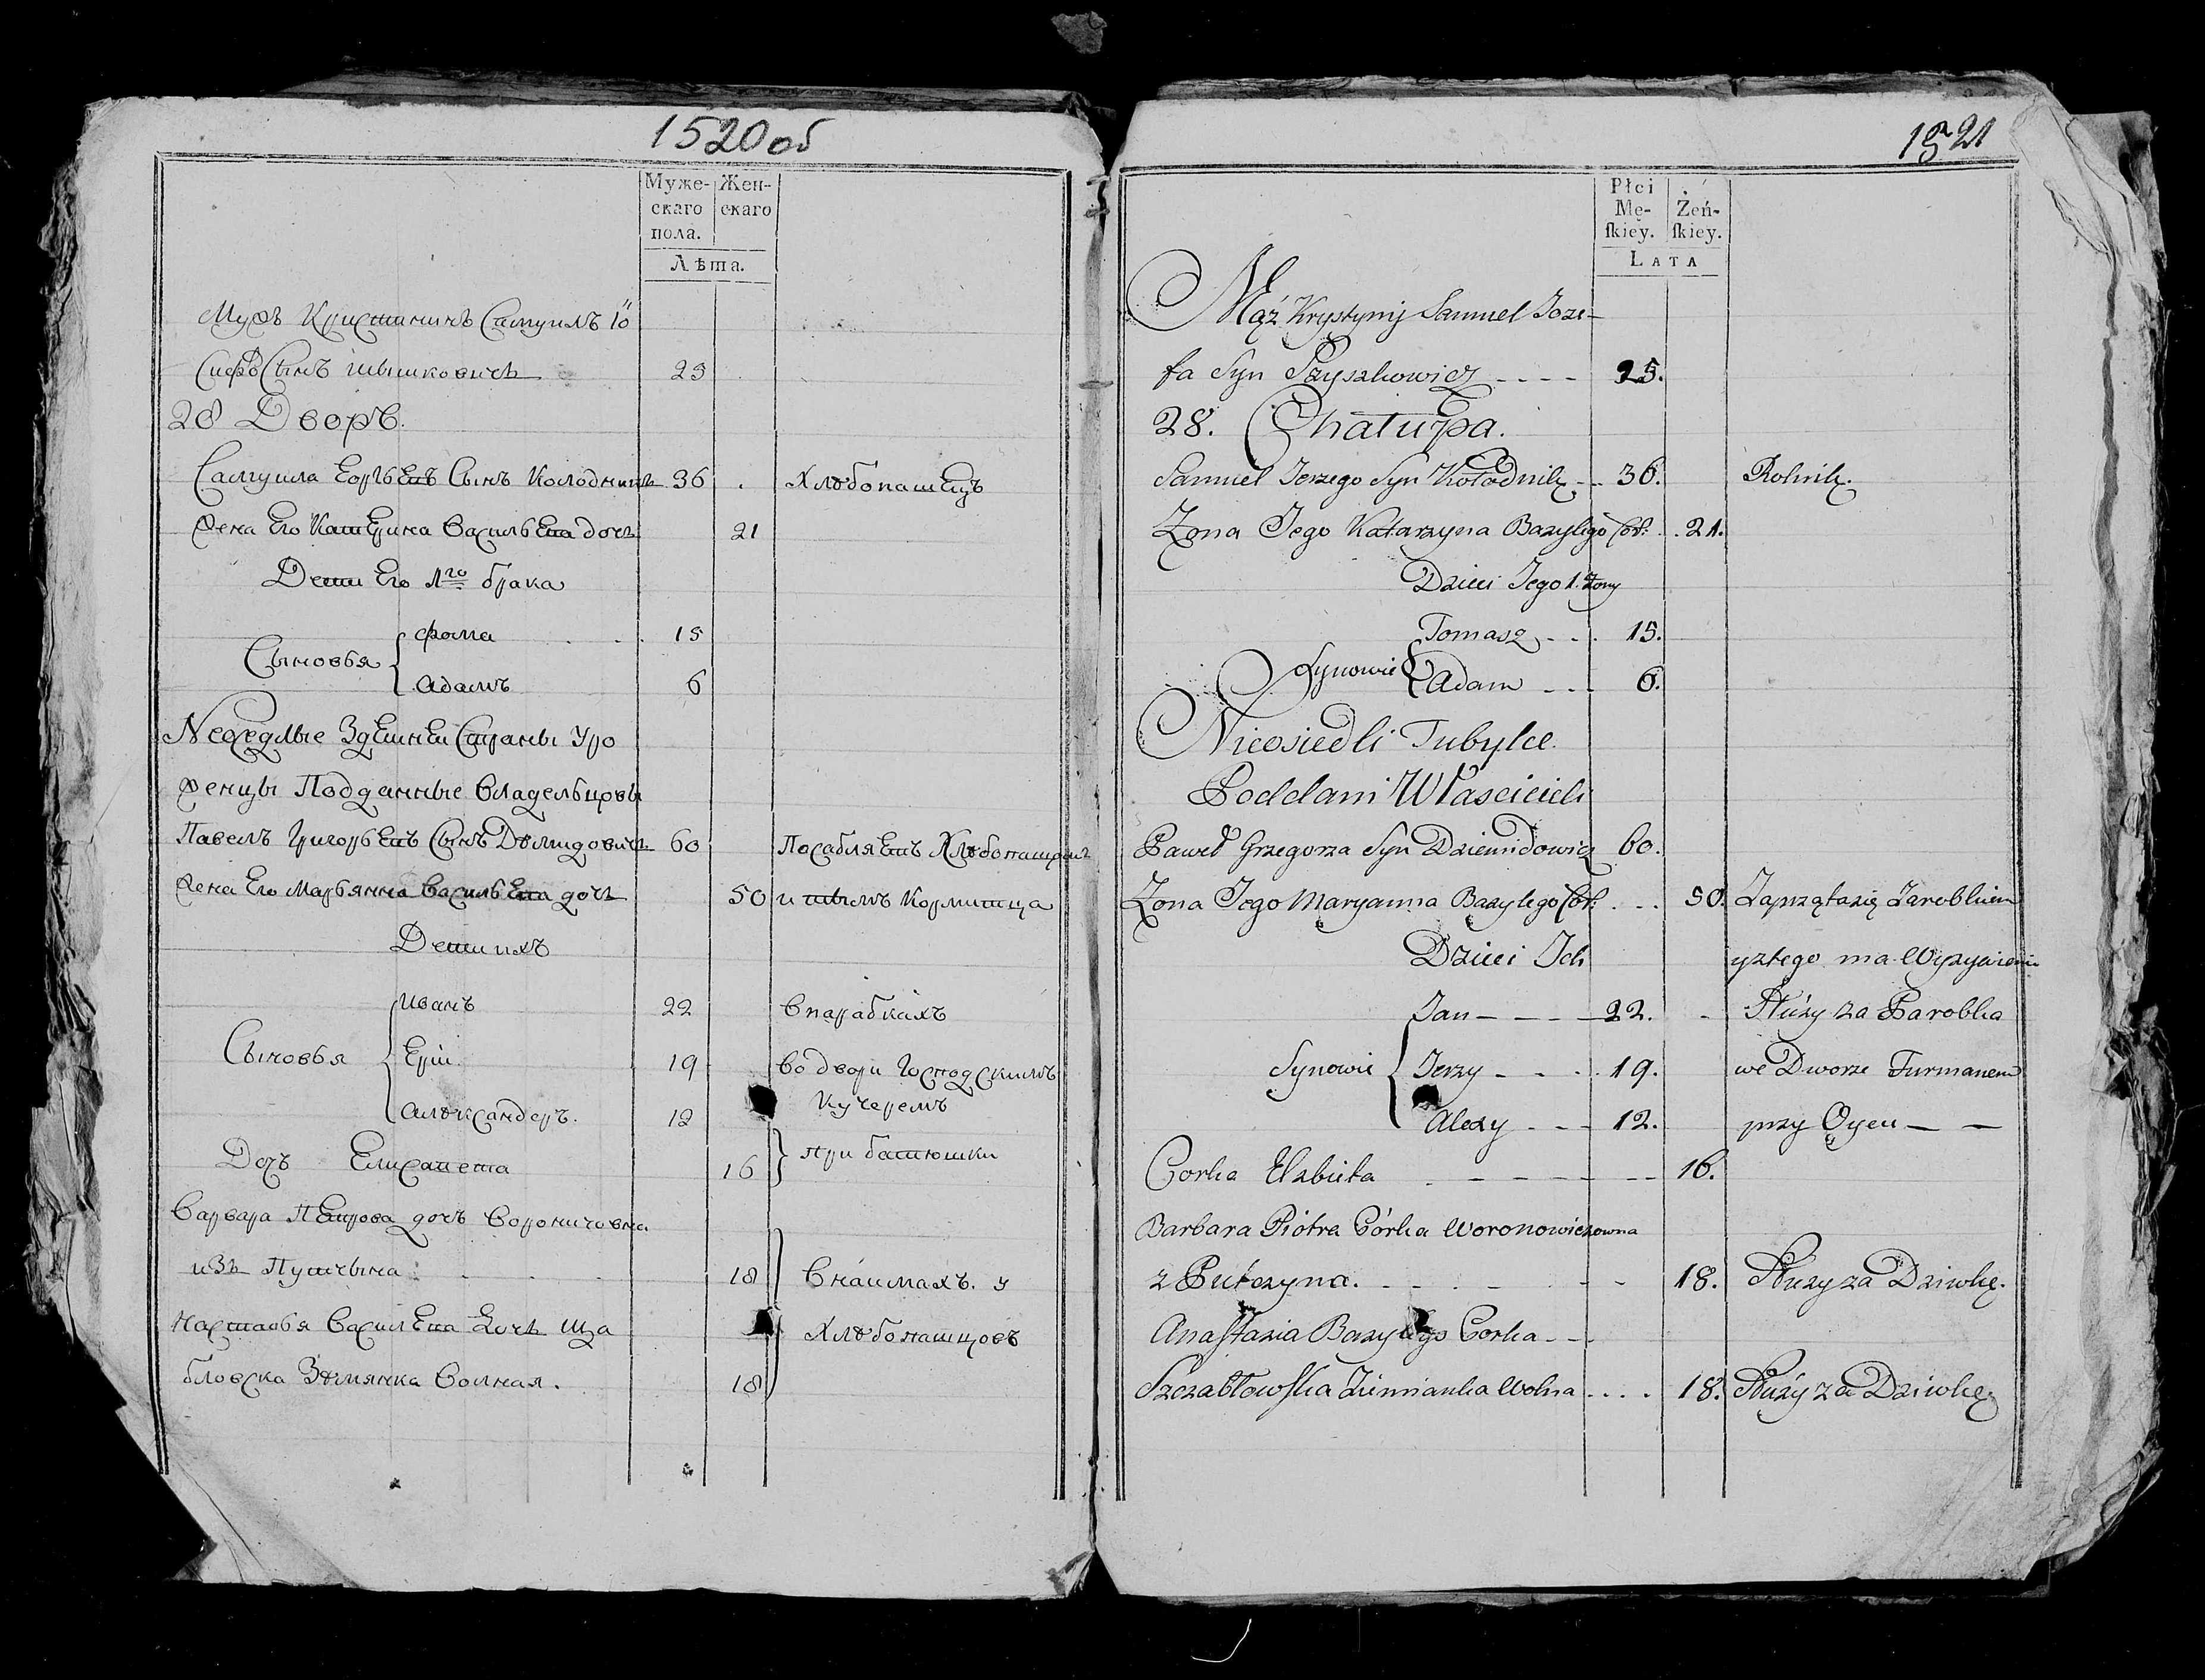 1520об
Муже-
скаго
пола.
Жен-
скаго
Лѣта.
Мужъ Кристининъ Самуилъ Іо
сифъ Сынъ Шышковичъ 25
28 Дворъ.
Самуила Ергьевъ Сынъ Колодникъ 36 Хлѣбопашецъ
Жена Его Катерина Васильева дочь 21
Дети Его 1го брака
Сыновья
Фома 15
Адамъ 6
Неоседлые Здешней Страны Уро
женцы Подданные Владельцовы
Павелъ Григорьевъ Сынъ Дѣмидовичъ 60 Пособляетъ Хлѣбопашцамъ
Жена Его Марьянна Васильева дочь 50 и тѣмъ Кормитца
Дети ихъ
Сыновья
Иванъ 22 В парабкахъ
Ерій 19 во двори Господскимъ
Кучеремъ
Алѣксандеръ. 12
при батюшки
Дочь Елисавета 16
Варвара Петрова дочь Вороничовна
изъ Путчына 18 В наимахъ у
Настасья Васильева Дочь Ща
Хлѣбопашцовъ
бловска Зѣмянка Волная. 18
1521
Płci
Mę-
ſkiey.
Żeń-
ſkiey.
LATA
Mąż Krystyny Samuel Joze-
fa Syn Szyszkowicz - - - - 25.
28. Chałupa.
Samuel Jerzego Syn Kołodnik - - 36. Rolnik.
Zona Jego Katarzyna Bazylego Cór: . . 21.
Dzieci Jego 1. żony
Synowie
Tomasz - - . 15.
Adam - - - 6.
Nieosiedli Tubylce.
Poddani Właścicieli
Paweł Grzegorza Syn Dziemidowicz 60.
Zona Jego Maryanna Bazylego Cór: . - - 50. Zaprząta się Zarobkiem
Dzieci Ich y z tego ma Wyżywienie
Synowie
Jan - - - - 22. - Służy za Parobka
Jerzy - - - . 19. we Dworze Furmanem
Alexy - - - 12. przy Oycu - -
Corka Elzbieta - - - - - - - 16.
Barbara Piotra Córka Woronowiczowna
z Putczyna. - - - - - - 18. Służy za Dziwkę.
Anaſtazia Bazylego Corka - -
Szczabłowſka Ziemianka Wolna . . . . 18. Służy za Dziwkę.